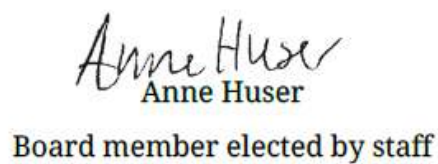 Anne Huser
Anne Huser
Board member elected by staff